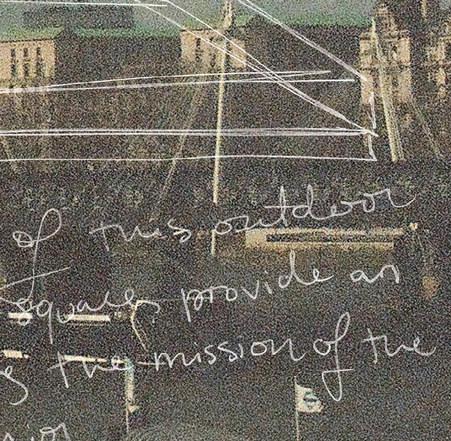 of this outdoor
square provide an
the mission of the